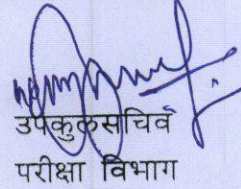 उपकुलसचिव
परीक्षा विभाग